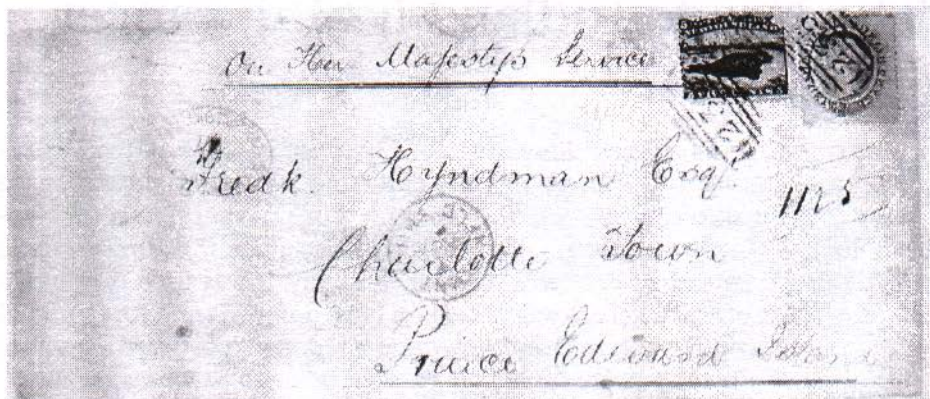 On Her Majesty's Service
Fredk. Hyndman Esqr
1125
Charlotte Town
Prince Edward Island